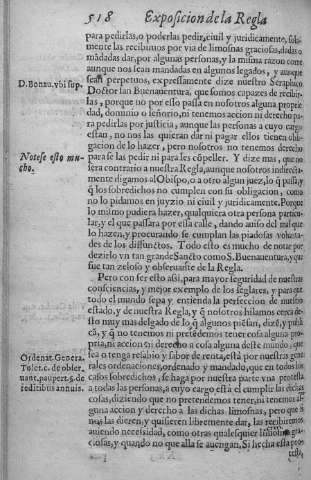 518 Exposicion de la Regla
para pedirlas, o poderlas pedir, civil y juridicamente,
mente las recibimos por via de limosnas graciosas, dadas o
mãdadas dar, por algunas personas, y la misma razon corre
aunque nos sean mandadas en algunos legados, y aunque
sean perpetuos, expressamente dize nuestro Seraphico
D. Bonau. vbi sup.
Doctor san Buenauentura, que somos capazes de recibir-
las, porque no por esso passa en nosotros alguna proprie
dad, dominio o señorio, ni tenemos accion ni derecho pa-
ra pedirlas por justicia, aunque las personas a cuyo cargo
estan, no nos las quieran dar ni pagar ellos tienen obli-
gacion de lo hazer, pero nosotros no tenemos derecho
Notese esto mu-
cho.
para se las pedir ni para les cõpeller. Y dize mas, que no
sera contrario a nuestra Regla, aunque nosotros indirecta-
mente digamos al Obispo, o a otro algun juez, lo q̃ passa, y
q̃ los sobredichos no cumplen con su obligacion, como
no lo pidamos en juyzio ni civil y juridicamente. Porque
lo mismo pudiera hazer, qualquiera otra persona particu-
lar, y el que passara por essa calle, dando auiso del mal que
lo hazen, y procurando se cumplan las piadosas volunta-
des de los diffunctos. Todo esto es mucho de notar por
dezirlo vn tan grande Sancto como S. Buenauentura, y que
fue tan zeloso y obseruante de la Regla.
Pero con ser esto assi, para mayor seguridad de nuestras
consciencias, y mejor exemplo de los seglares, y para que
todo el mundo sepa y entienda la perfeccion de nuestro
estado, y de nuestra Regla, y q̃ nosotros hilamos cerca de-
sto muy mas delgado de lo q̃ algunos piẽsan, dizẽ, y publi
cã, y q̃ no tenemos ni pretẽdemos tener cosa alguna pro-
pria, ni accion ni derecho a cosa alguna deste mundo, que
Ordenat. Genera.
Tolet. c. de obser.
uant. paupert. §. de
reditibus annuis.
lea o tenga resabio y sabor de renta, està por nuestras gene
rales ordenaciones, ordenado y mandado, que en todos los
casos sobredichos, se haga por nuestra parte vna protesta
a todas las personas, a cuyo cargo està el cumplir las dichas
cosas, diziendo que no pretendemos tener, ni tenemos al-
guna accion y derecho a las dichas limosnas, pero que si
nos las dieren, y quisieren libremente dar, las recibiremos
auiendo necessidad, como otras qualesquier limosnas gra-
ciosas, y quando no que alla se auengan. Si hecha esta pro-
testa,